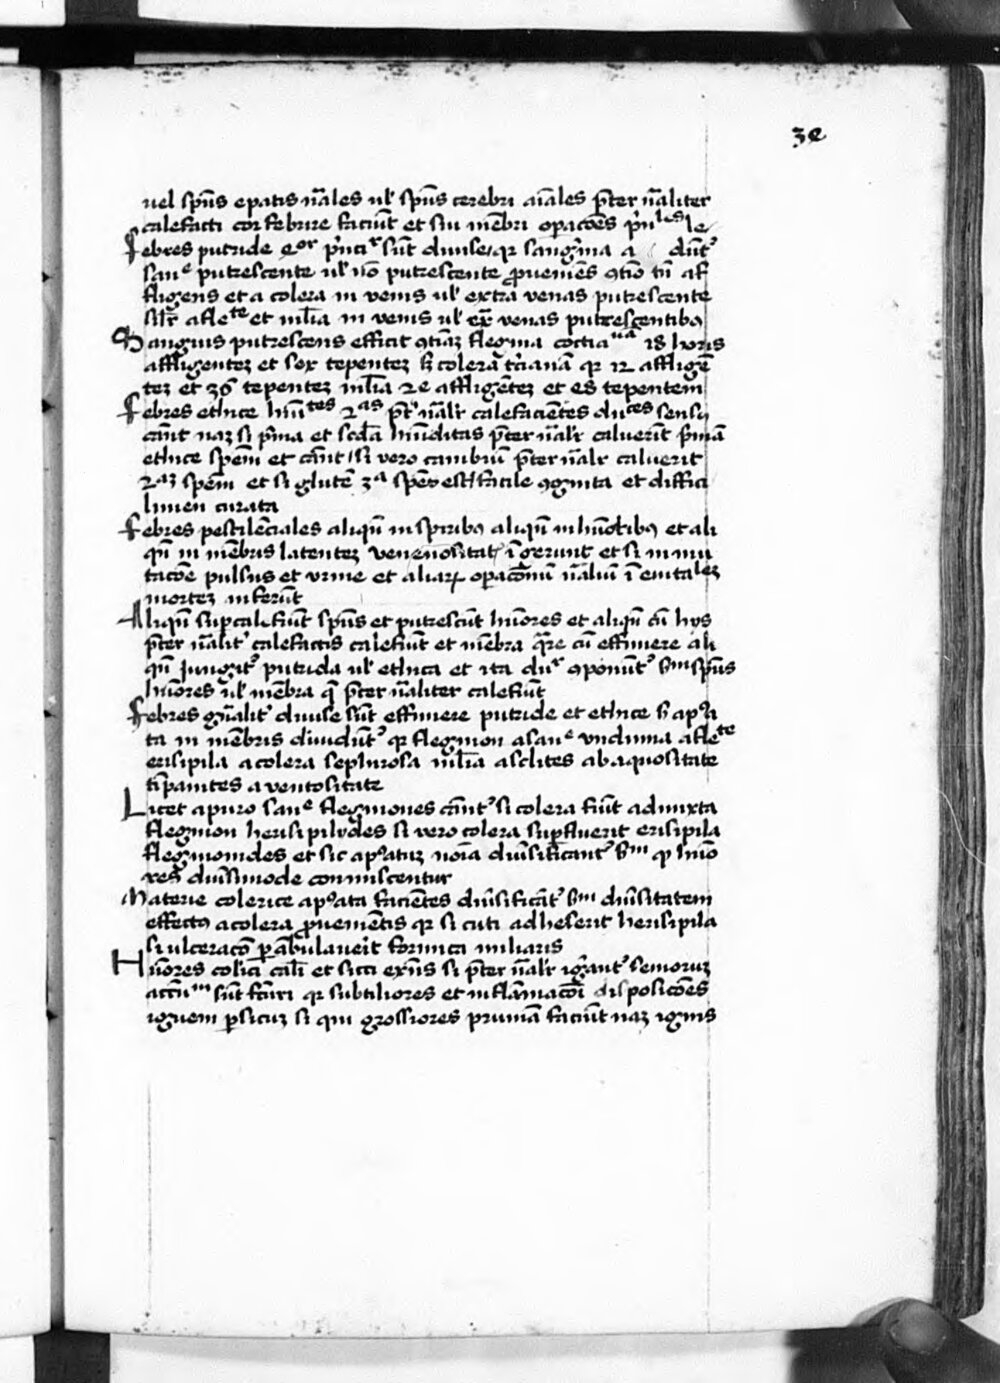 3e
uel spūs epatis nāles ul' spūs cerebri aīales p̄ter nāliter
calefacti cor febrire faciūt et sui mēbri opacōes p̄n les le
Febres putride eor p̄nciʳ sūt diuise qr sanguīa a dūtʳ
sanᵉ putrescente ul' nō putrescente ꝓueniēs ꝯtīo tn̄ af
fligens et a colera in venis ul' extra venas putrescente
silr̄ a fleᵗᵉ et mlīa in venis ul' ex̄ venas putrescentibꝰ
Sanguis putrescens efficit ꝯtīaꝫ flegma coctiaⁿᵃ 18 horis
affligenteꝫ et sex tepenteꝫ sꝫ colera t'cianā qr 12 affligē
teꝫ et 36 tepenteꝫ mlīa 2e affligēteꝫ et e8 tepentem
Febres ethice hn̄tes 2as p̄tʳ nālr calefacientes duces sensu
cānt naꝫ si p̄ma et scd̄a hūiditas p̄ter nālr caluerit p̄mā
ethice spēm et cānt si vero cambiū p̄ter nālr caluerit
2aꝫ spēm et si glutē 3a spēs est facile ꝯgnita et diffici
limen curata
Febres pestilēciales aliqn̄ in spiribꝰ aliqn̄ in hūoribꝰ et ali
qn̄ in mēbris latenteꝫ venenositatꝫ īgerunt et si in mu
tacōe pulsus et vrine et aliaꝝ opacōnū nāliū īeuitaleꝫ
morteꝫ inferūt
Aliqn̄ supcalefiūt spūs et putrescūt hūores et aliqn̄ cū hys
p̄ter nālitʳ calefactis calefiūt et mēbra qꝛe cū effimere ali
qn̄ iungitʳ putrida ul' ethica et ita duʳ ꝯponūtʳ sm̄ spūs
hūores ul' mēbra q̄ p̄ter nāliter calefiūt
Febres gn̄alitʳ diuise sūt effimere putride et ethice sꝫ apꝰa
ta in mēbris diuidūtʳ qr flegmon a sanᵉ vndimia a fleᵗᵉ
erisipila a colera sephirosa mlīa asclites ab aquositate
timpanites a ventositate
Licet a puro sanᵉ flegmones cānt si colera fiūt admixta
flegmon herisipilydes si vero colera supfluerit erisipila
flegmonides et sic apꝰatuꝫ noīa diūsificantʳ sm̄ ꝙ hūo
res diūsimode conmiscentur
Materie colerice apꝰata facientes diūsificātʳ sm̄ diūsitatem
effectꝰ a colera ꝓuenientis qr si cuti adheserit herisipila
si ulceracō p̄ambulauerit formica miliaris
Hūores colici cali et sicci exn̄s si p̄ter nālr igrantʳ femoruꝫ
actuᵐ sūt fūri qr subtiliores et inflāmacōi disposicōes
ignem p̄sicuꝫ si qui grossiores prunā faciūt naꝫ ignis